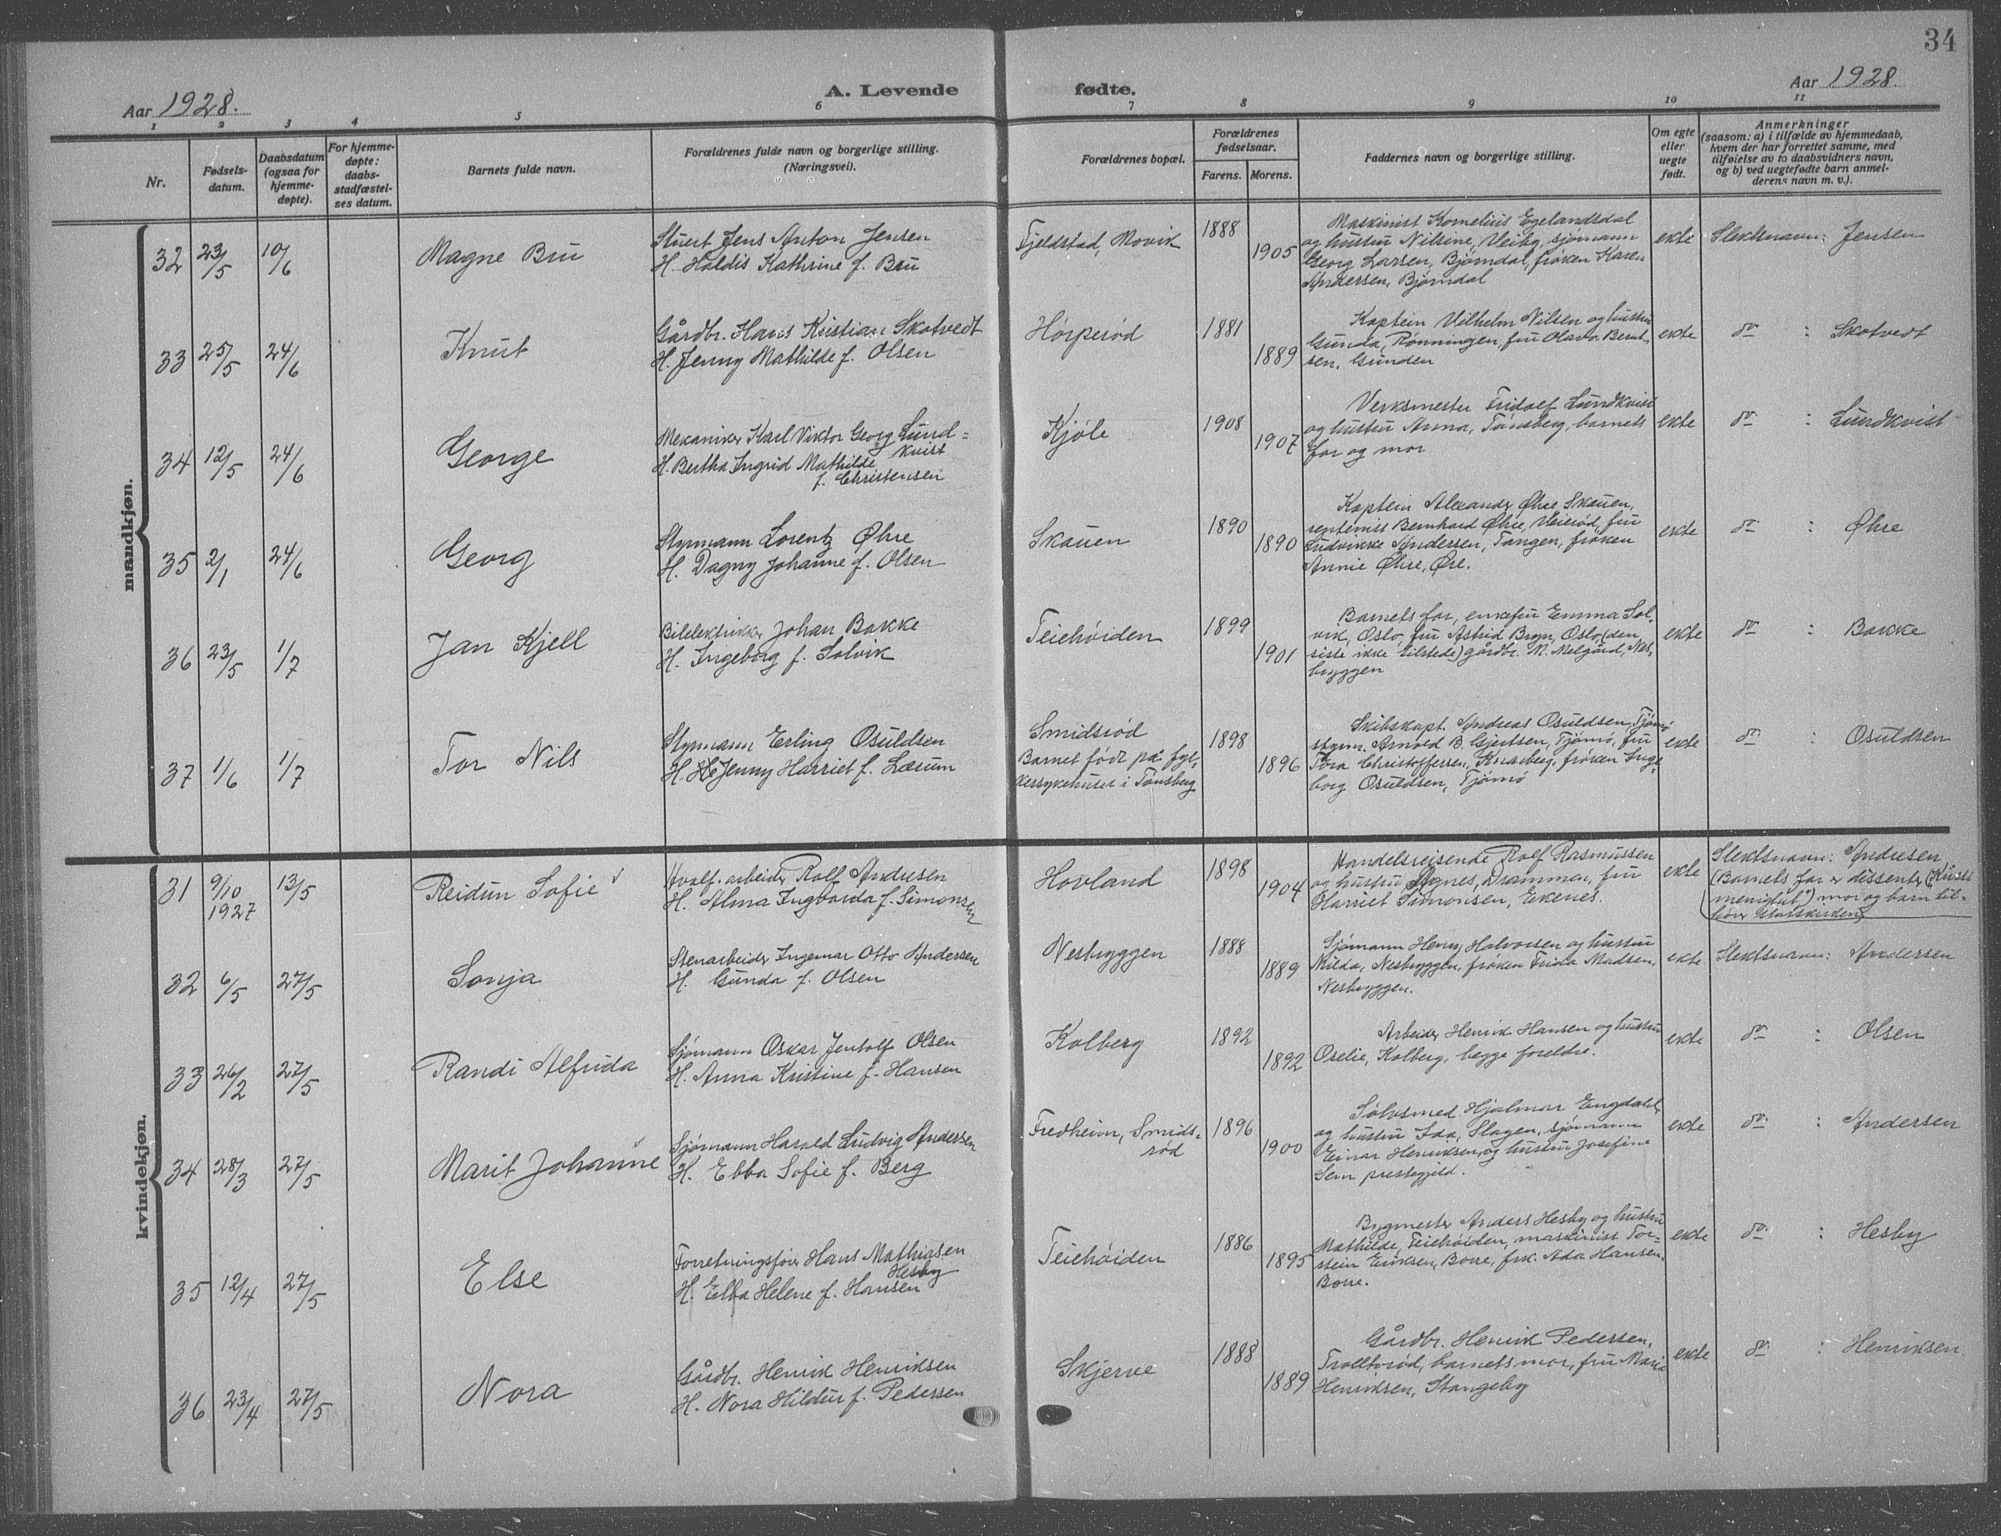 34
Aar 1928.
A. Levende
fødte.
Aar 1928
1 2 3 4 5 6 7 8 9 10 11
Nr.
Fødsels-
datum.
Daabsdatum
(ogsaa for
hjemme-
døpte).
For hjemme-
døpte:
daabs-
stadfæstel-
ses datum.
Barnets fulde navn.
Forældrenes fulde navn og borgerlige stilling.
(Næringsvei).
Forældrenes bopæl.
Forældrenes
fødselsaar.
Farens. Morens.
Faddernes navn og borgerlige stilling.
Om egte
eller
uegte
født.
Anmerkninger
(saasom: a) i tilfælde av hjemmedaab,
hvem der har forrettet samme, med
tilføielse av to daabsvidners navn,
og b) ved uegtefødte barn anmel-
derens navn m. v.).
mandkjøn.
32 23/5 10/6
Magne Bru
Stuert Jens Anton Jensen
H. Haldis Kathrine f. Bru
Fjeldstad, Movik
1888
1905
Maskinist Kornelius Egelandsdal
og hustru Nilsine, Veiby, sjømann
Georg Larsen, Bjørndal, frøken Karen
Andersen, Bjørndal
ekte
Slektsnavn: Jensen
33 25/5 24/6
Knut
Gårdbr. Hans Kristian Skotvedt
H. Jenny Mathilde f. Olsen
Hørperød
1881
1889
Kaptein Vilhelm Nilsen og hustru
Gunda, Rønningen, fru Olava Bernt-
sen, Grinden
ekte
do : Skotvedt
34 12/5 24/6
George
Mekaniker Karl Viktor Georg Lund-
kvist
H. Bertha Ingrid Mathilde
f. Christensen
Kjøle
1908
1907
Verksmester Fridolf Lundkvist
og hustru Anna, Tønsberg, barnets
far og mor
ekte
do : Lundkvist
35 2/1 24/6
Georg
Styrmann Lorentz Øhre
H. Dagny Johanne f. Olsen
Skauen
1890
1890
Kaptein Alexander Øhre Skauen,
Bernhard Øhre, Veierød, fru
Ludvikke Andersen, Tangen, frøken
Annie Øhre, Øre.
ekte
do : Øhre
36 23/5 1/7
Jan Kjell
Bilelektriker Johan Bakke
H. Ingeborg f. Solvik
Teiehøiden
1899
1901
Barnets far, enkefru Emma Sol-
vik, Oslo, fru Astrid Bryn, Oslo (den
siste ikke tilstede) gårdbr. M. Melgård, Nes-
byggen
ekte
do : Bakke
37 1/6 1/7
Tor Nils
Styrmann Erling Osuldsen
H. Jenny Harriet f. Lærum
Smidsrød
Barnet født på fyl-
kessykehuset i Tønsberg
1898
1896
Skibskapt. Andreas Osuldsen, Tjømø
styrm. Arnold B. Gjertsen, Tjømø, fru
Tora Christoffersen, Knarberg, frøken Inge-
borg Osuldsen, Tjømø
ekte
do : Osuldsen
kvindekjøn.
31 9/10 1927 13/5
Reidun Sofie
Hvalf. arbeider Rolf Andresen
H. Alma Ingvarda f. Simonsen
Hovland
1898
1904
Handelsreisende Rolf Rasmussen
og hustru Agnes, Drammen, fru
Harriet Simonsen, Ekenes.
ekte
Slektsnavn: Andresen
(Barnets far er dissenter (Kristi
menighet") mor og barn til-
hører Statskirken)
32 6/5 27/5
Sonja
Stenarbeider Ingemar Otto Andersen
H. Gunda f. Olsen
Nesbyggen
1888
1889
Sjømann Henry Halvorsen og hustru
Milda, Nesbyggen, frøken Frida Madsen,
Nesbyggen.
ekte
Slektsnavn: Andersen
33 26/2 27/5
Randi Alfrida
Sjømann Oskar Jentolf Olsen
H. Anna Kristine f. Hansen
Kolberg
1892
1892
Arbeider Henrik Hansen og hustru
Oselie, Kolberg, begge foreldre.
ekte
do : Olsen
34 28/3 27/5
Marit Johanne
Sjømann Harald Ludvig Andersen
H. Ebba Sofie f. Berg
Fredheim, Smids-
rød
1896
1900
Sølvsmed Hjalmar Engdahl
og hustru Ida, Slagen, sjømann
Einar Henriksen og hustru Josefine
Sem prestegjeld.
ekte
do : Andersen
35 12/4 27/5
Else
Forretningsfører Hans Mathiasen
Hesby
H. Ebba Helene f. Hansen
Teiehøiden
1886
1895
Bygmester Anders Hesby og hustru
Mathilde, Teiehøiden, maskinist Tor-
stein Eriksen, Borre, frk. Ada Hansen
Borre.
ekte
do : Hesby
36 23/4 27/5
Nora
Gårdbr. Henrik Henriksen
H. Nora Hildur f. Pedersen
Skjerve
1888
1889
Gårdbr. Henrik Pedersen,
Trolltvrød, barnets mor, fru Marie
Henriksen, Stangeby
ekte
do : Henriksen.